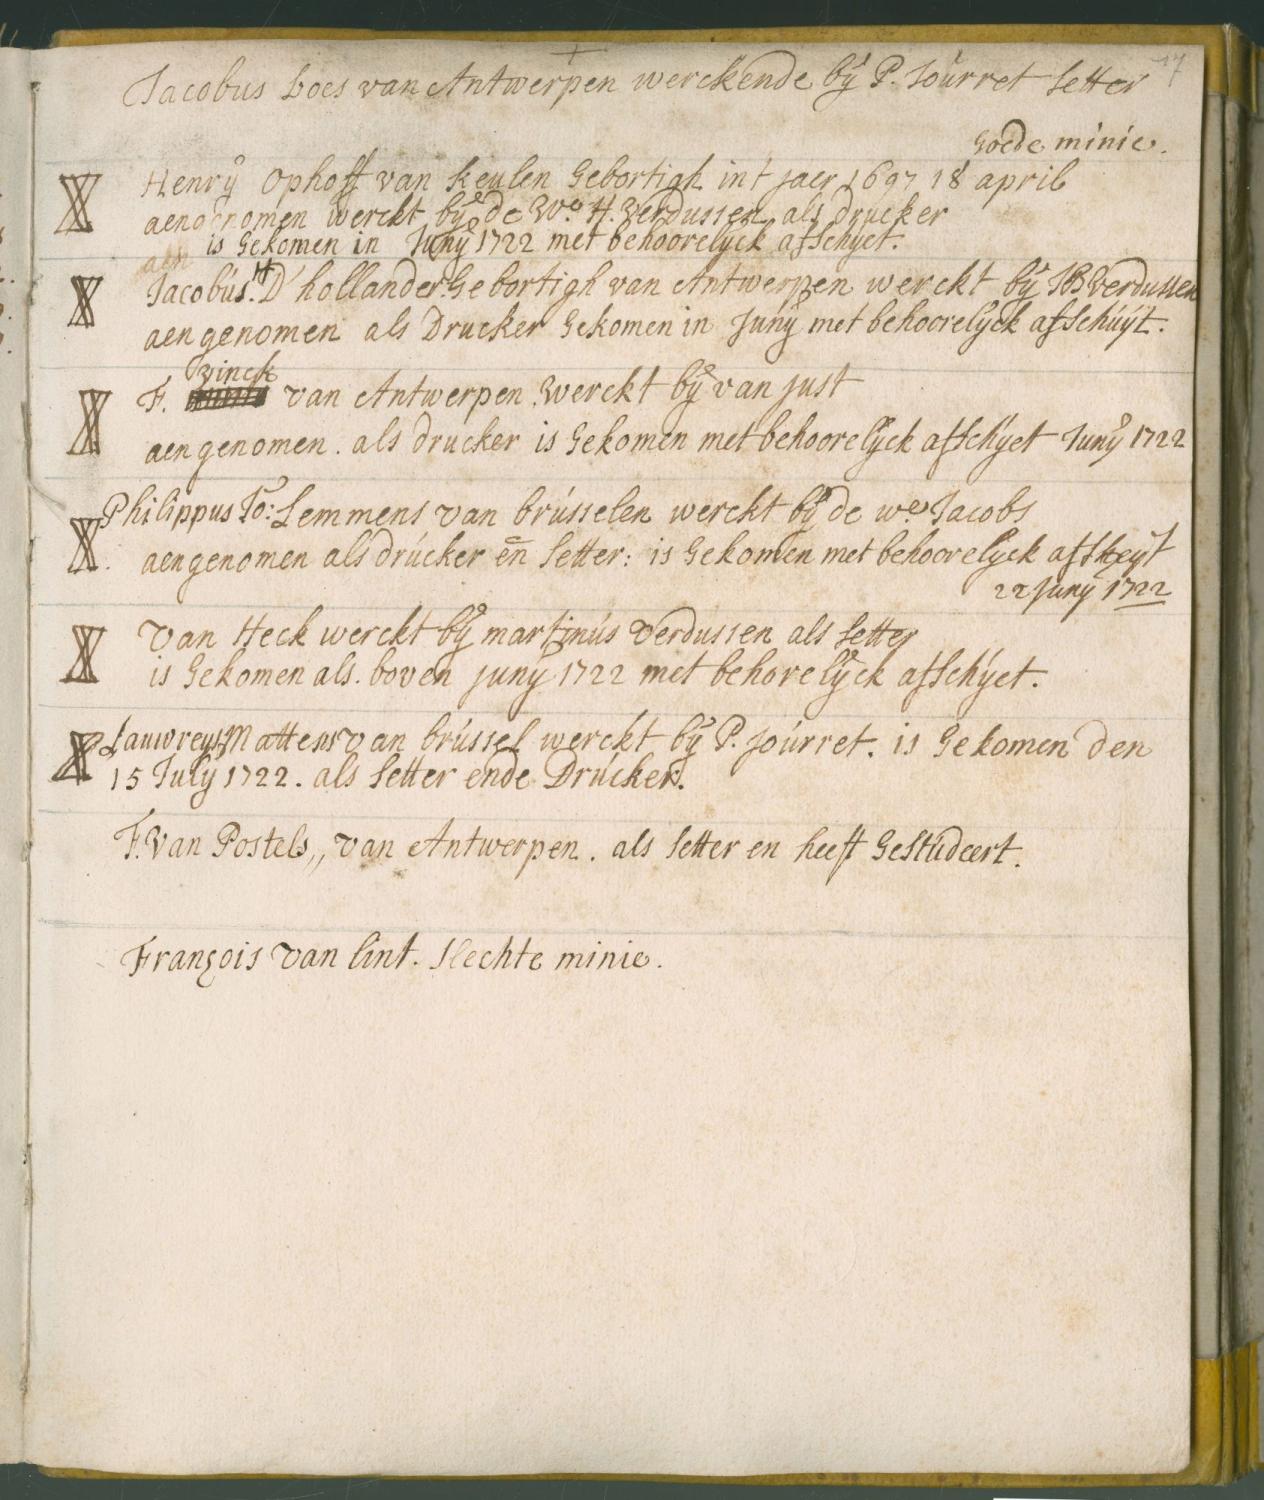 17
Jacobus Loes van Antwerpen werckende bÿ P. Jourret Setter
Goede minie.
Henrÿ Ophoff van Keulen Gebortigh in't jaer 1697 18 april
aengenomen werckt bÿ de We. H. Verdussen als drucker
is Gekomen in Junÿ 1722 met behoorelÿck afschÿet.
Jacobus H D'hollander Gebortigh van Antwerpen werckt bÿ HB Verdussen
aengenomen als Drucker Gekomen in Junÿ met behoorelÿck afschuÿt.
Vinck
F. van Antwerpen werckt bÿ van just
aengenomen. als drucker is Gekomen met behoorelÿck afschÿet Junÿ 1722
Philippus Jo: Lemmens van brusselen werckt bÿ de we. Jacobs
aengenomen als drucker en Setter: is Gekomen met behoorelÿck afscheÿt
22 Junÿ 1722
Van Heck werckt bÿ martinus Verdussen als Setter
is Gekomen als boven junÿ 1722 met behorelÿck afschÿet.
Lauwreÿs Mattens van brussel werckt bÿ P. jourret. is Gekomen den
15 Julÿ 1722. als Setter ende Drucker.
F. Van Postels,, van Antwerpen. als Setter en heeft Gestudeert.
François van lint. Slechte minie.